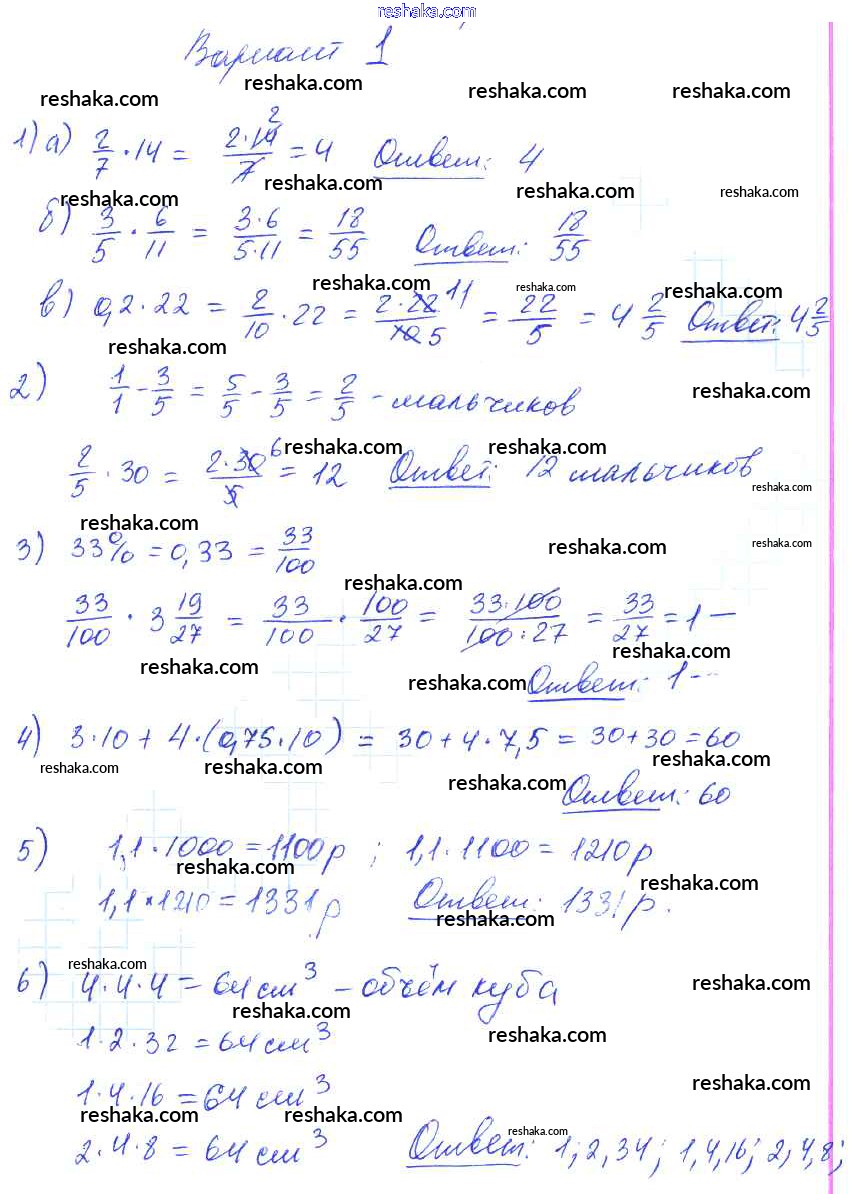 reshaka.com
Вариант 1
reshaka.com reshaka.com reshaka.com reshaka.com
1) а) 2/7 · 14 = 2·14/7 2 = 4 Ответ: 4
reshaka.com reshaka.com reshaka.com reshaka.com
б) 3/5 · 6/11 = 3·6/5·11 = 18/55 Ответ: 18/55
reshaka.com reshaka.com reshaka.com
в) 0,2 · 22 = 2/10 · 22 = 2·22 11/10 5 = 22/5 = 4 2/5 Ответ: 4 2/5
reshaka.com reshaka.com
2) 1/1 - 3/5 = 5/5 - 3/5 = 2/5 - мальчиков
reshaka.com reshaka.com
2/5 · 30 = 2·30 6/5 = 12 Ответ: 12 мальчиков
reshaka.com reshaka.com
3) 33% = 0,33 = 33/100
reshaka.com reshaka.com reshaka.com
33/100 · 3 19/27 = 33/100 · 100/27 = 33·100/100:27 = 33/27 = 1 —
reshaka.com reshaka.com reshaka.com
Ответ: 1 --
4) 3·10 + 4·(0,75·10) = 30 + 4·7,5 = 30+30 = 60
reshaka.com reshaka.com reshaka.com reshaka.com
Ответ: 60
5) 1,1 · 1000 = 1100р ; 1,1 · 1100 = 1210р
reshaka.com reshaka.com
1,1 × 1210 = 1331р Ответ: 1331р.
reshaka.com reshaka.com
6) 4·4·4 = 64 см³ - объём куба
reshaka.com
1·2·32 = 64 см³
reshaka.com reshaka.com
1·4·16 = 64 см³
reshaka.com reshaka.com reshaka.com
2·4·8 = 64 см³ Ответ: 1;2,34; 1,4,16; 2,4,8;